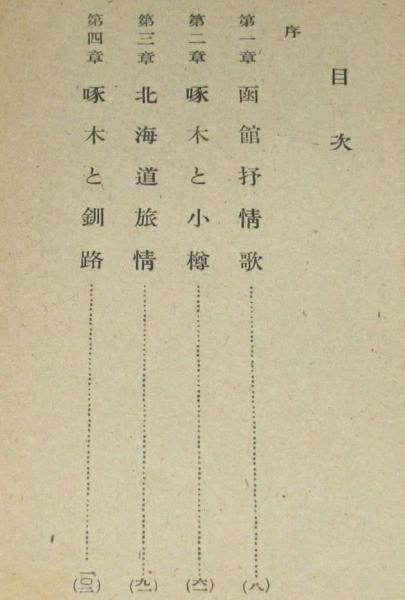 目次
序
第一章 函館抒情歌 (八)
第二章 啄木と小樽 (六一)
第三章 北海道旅情 (九一)
第四章 啄木と釧路 (一〇三)